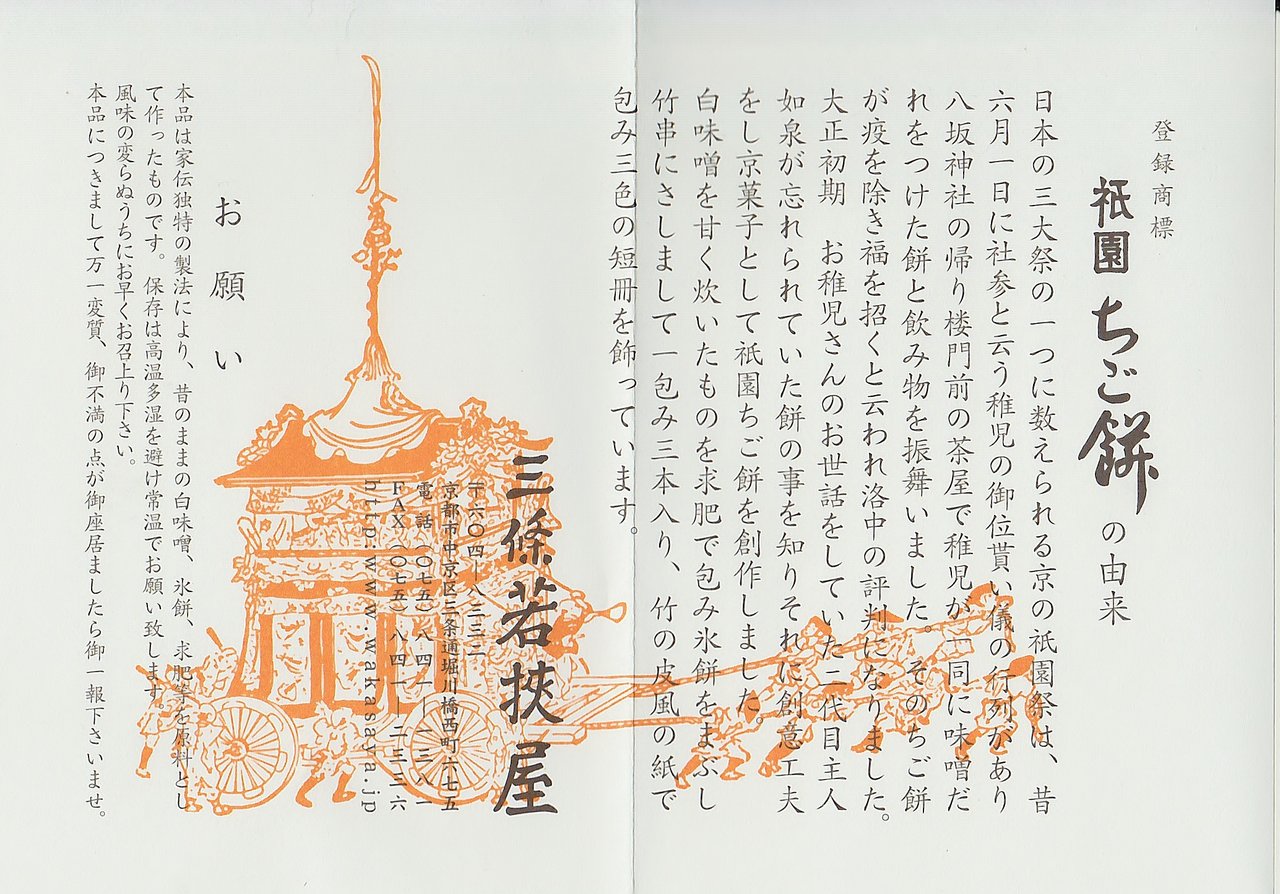 登録商標
祇園ちご餅の由来
日本の三大祭の一つに数えられる京の祇園祭は、昔
六月一日に社参と云う稚児の御位貰い儀の行列があり
八坂神社の帰り楼門前の茶屋で稚児が一同に味噌だ
れをつけた餅と飲み物を振舞いました。そのちご餅
が疫を除き福を招くと云われ洛中の評判になりました。
大正初期　お稚児さんのお世話をしていた二代目主人
如泉が忘れられていた餅の事を知りそれに創意工夫
をし京菓子として祇園ちご餅を創作しました。
白味噌を甘く炊いたものを求肥で包み氷餅をまぶし
竹串にさしまして一包み三本入り、竹の皮風の紙で
包み三色の短冊を飾っています。
三條若狹屋
〒六〇四―八三三二
京都市中京区三条通堀川橋西町六七五
電話（〇七五）八四一―一三八一
FAX（〇七五）八四一―二三二六
http:www.wakasaya.jp
お願い
本品は家伝独特の製法により、昔のままの白味噌、氷餅、求肥等を原料とし
て作ったものです。保存は高温多湿を避け常温でお願い致します。
風味の変らぬうちにお早くお召上り下さい。
本品につきまして万一変質、御不満の点が御座居ましたら御一報下さいませ。